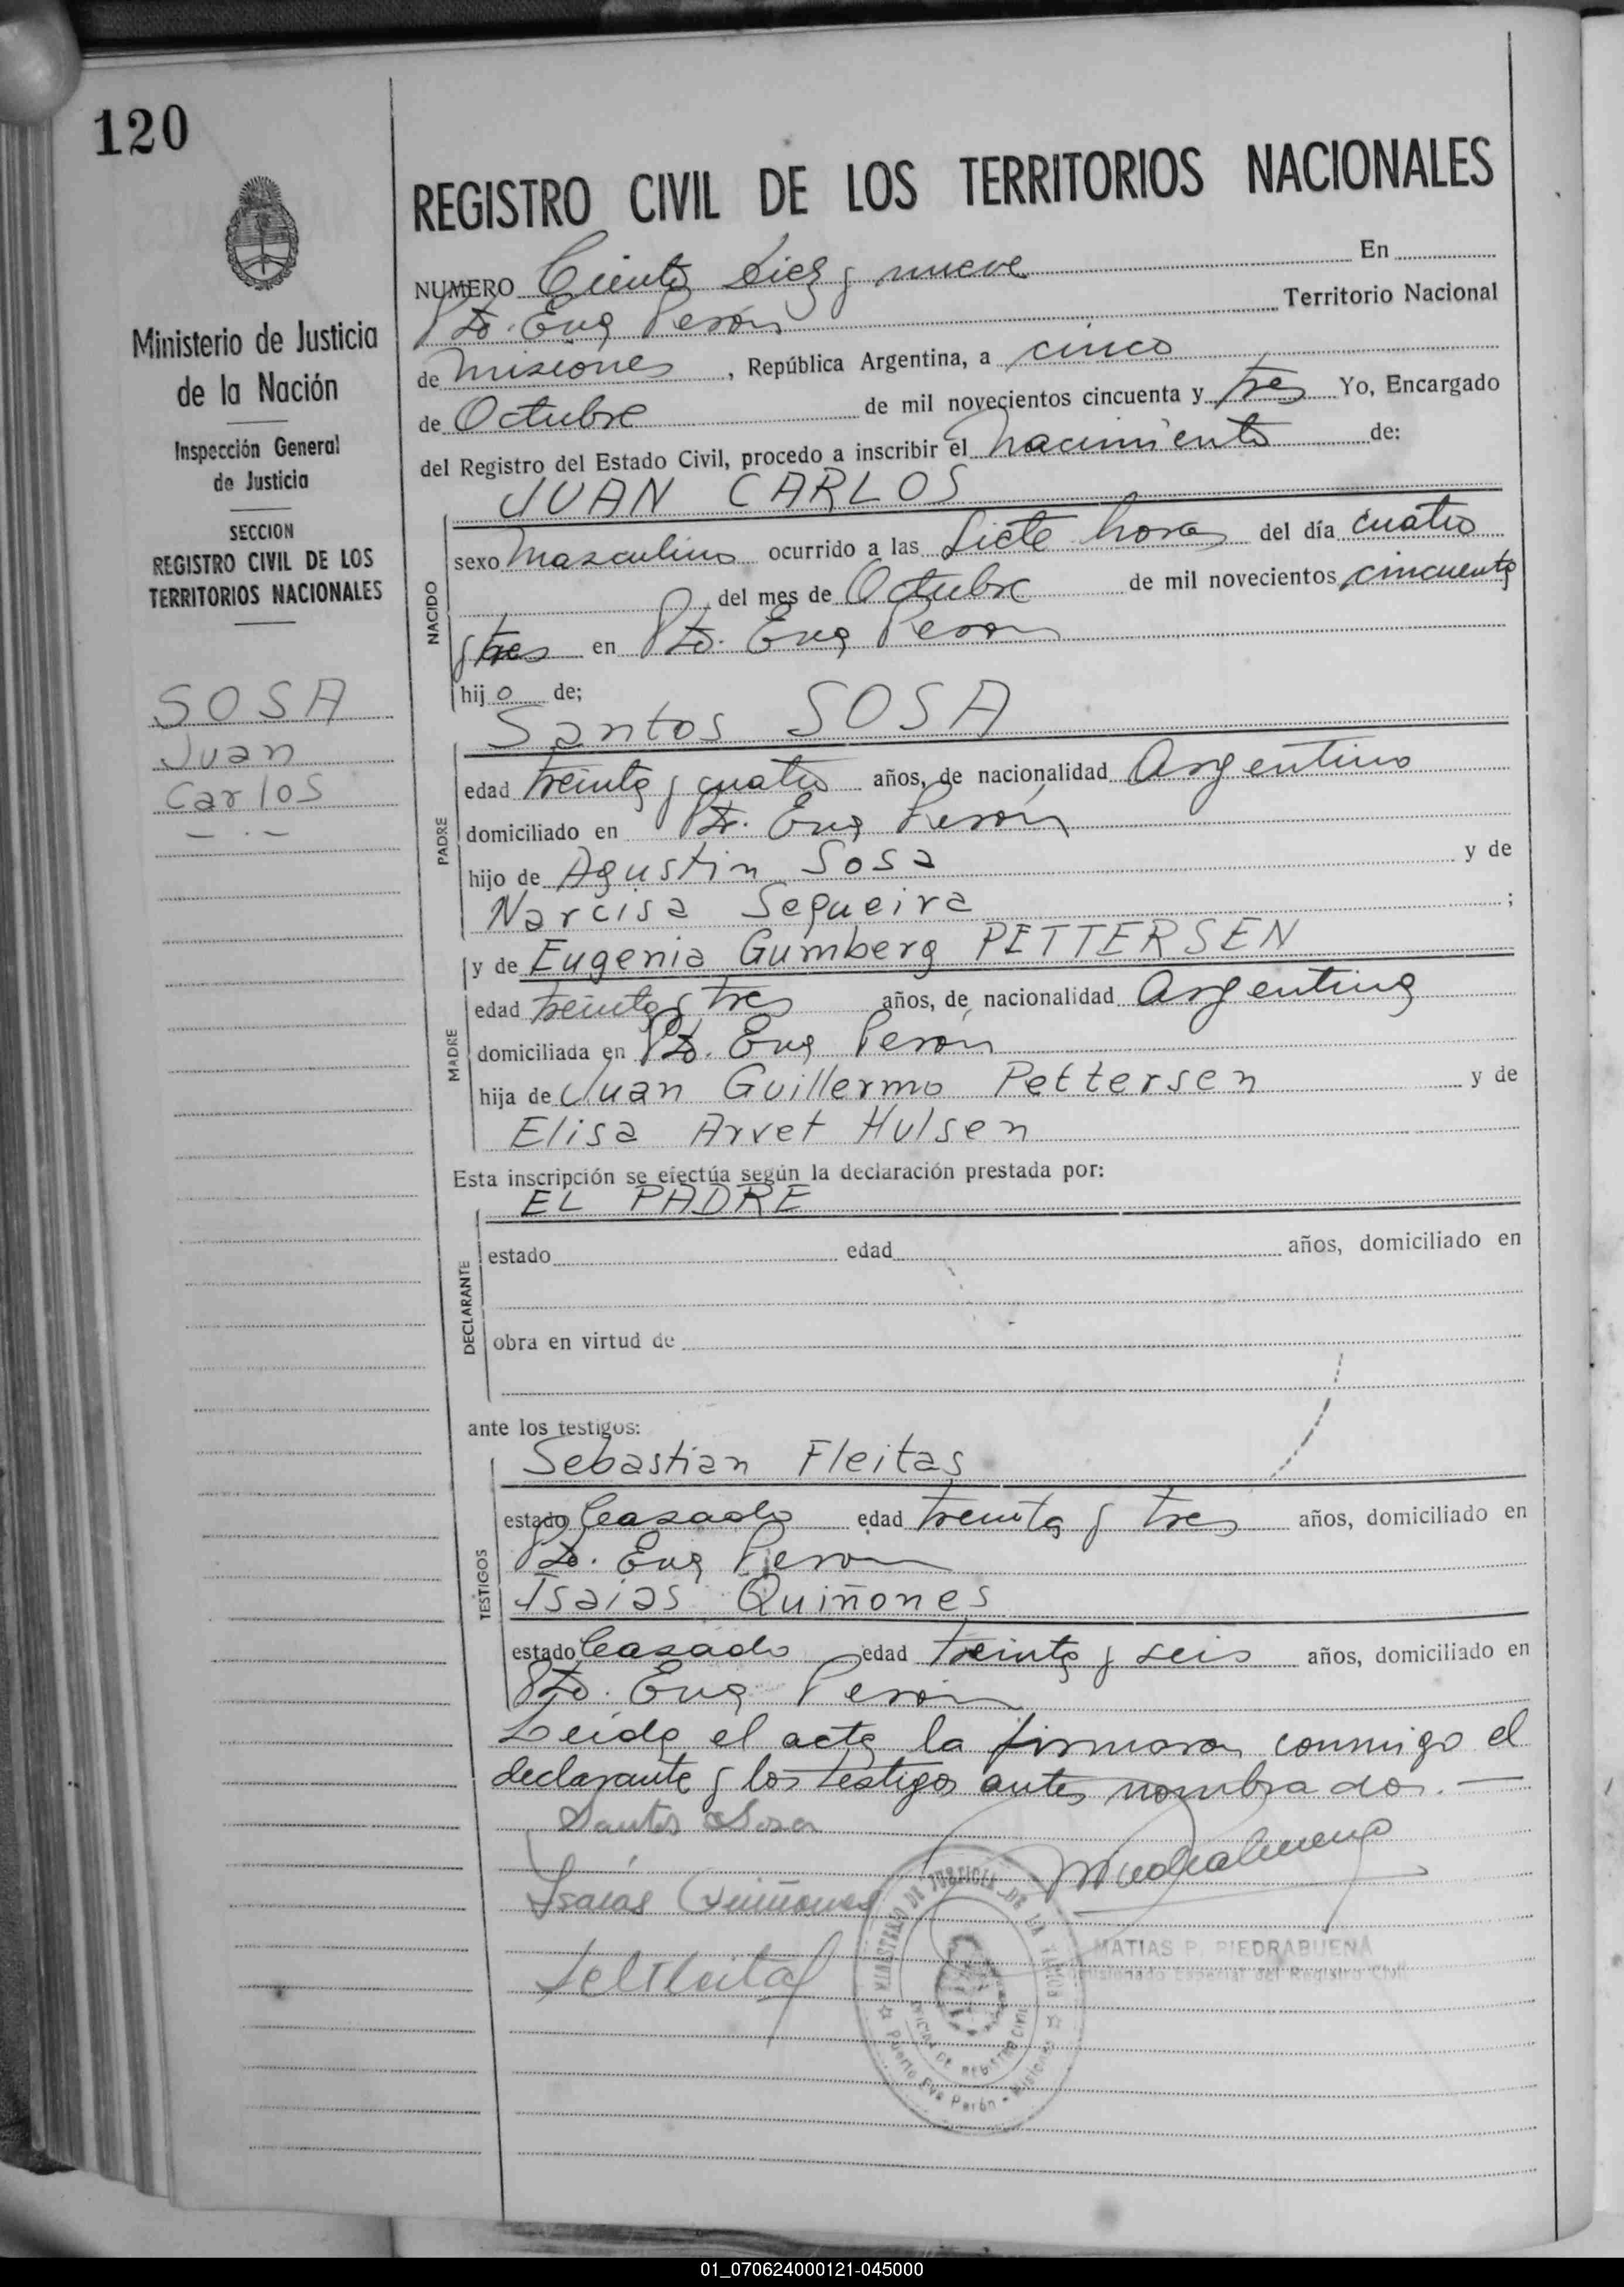 120
REGISTRO CIVIL DE LOS TERRITORIOS NACIONALES
Ministerio de Justicia
de la Nación
Inspección General
de Justicia
SECCION
REGISTRO CIVIL DE LOS
TERRITORIOS NACIONALES
SOSA
Juan
Carlos
NUMERO Ciento Diez y nueve En
Pto. Eva Perón Territorio Nacional
de Misiones, República Argentina, a cinco
de Octubre de mil novecientos cincuenta y tres Yo, Encargado
del Registro del Estado Civil, procedo a inscribir el nacimiento de:
JUAN CARLOS
NACIDO
sexo Masculino ocurrido a las Siete horas del día cuatro
del mes de Octubre de mil novecientos cincuenta
y tres en Pto. Eva Peron
hijo de;
Santos SOSA
PADRE
edad treinta y cuatro años, de nacionalidad Argentino
domiciliado en Pto. Eva Perón
hijo de Agustin Sosa y de
Narcisa Sequeira ;
y de Eugenia Gumberg PETTERSEN
MADRE
edad treinta y tres años, de nacionalidad Argentina
domiciliada en Pto. Eva Perón
hija de Juan Guillermo Pettersen y de
Elisa Arvet Hulsen
Esta inscripción se efectúa según la declaración prestada por:
EL PADRE
DECLARANTE
estado edad años, domiciliado en
obra en virtud de
ante los testigos:
Sebastian Fleitas
TESTIGOS
estado Casado edad treinta y tres años, domiciliado en
Pto. Eva Peron
Isaias Quiñones
estado Casado edad treinta y seis años, domiciliado en
Pto. Eva Perón
Leida el acta la firmaron conmigo el
declarante y los testigos antes nombrados.—
Santos Sosa
Isaias Quiñones
MINISTERIO DE JUSTICIA DE LA NACION
OFICINA DE REGISTRO CIVIL
Puerto Eva Perón - Misiones
MATIAS P. PIEDRABUENA
Comisionado Especial del Registro Civil
01_070624000121-045000